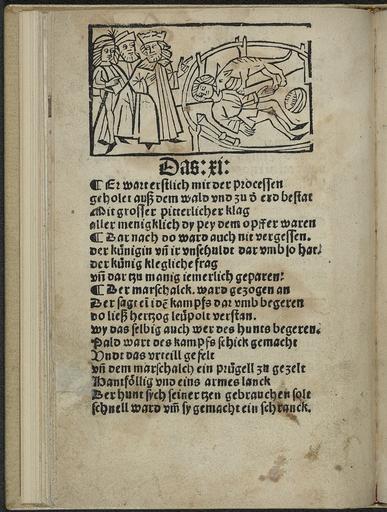 Das:xi:
¶ Er wart erstlich mit der processen
geholet auß dem wald vnd zu d̄ erd bestat
Mit grosser pitterlicher klag
aller menigklich dy pey dem opffer waren
¶ Dar nach do ward auch nit vergessen.
der künigin vn̄ ir vnschuldt dar vmb so hat/
der künig klegliche frag
vn̄ dar tzu manig iemerlich geparen/
¶ Der marschalck. ward gezogen an
Der sagt eī idē kampfs dar vmb begeren
do ließ hertzog leüpolt verstan.
wy das selbig auch wer des hunts begeren.
Pald wart des kampfs schick gemacht
Vndt das vrteill gefelt
vn̄ dem marschalch ein prügell zu gezelt
Hantföllig vnd eins armes lanck
Der hunt sych seiner tzen gebrauchen solt
schnell ward vm̄ sy gemacht ein schranck.